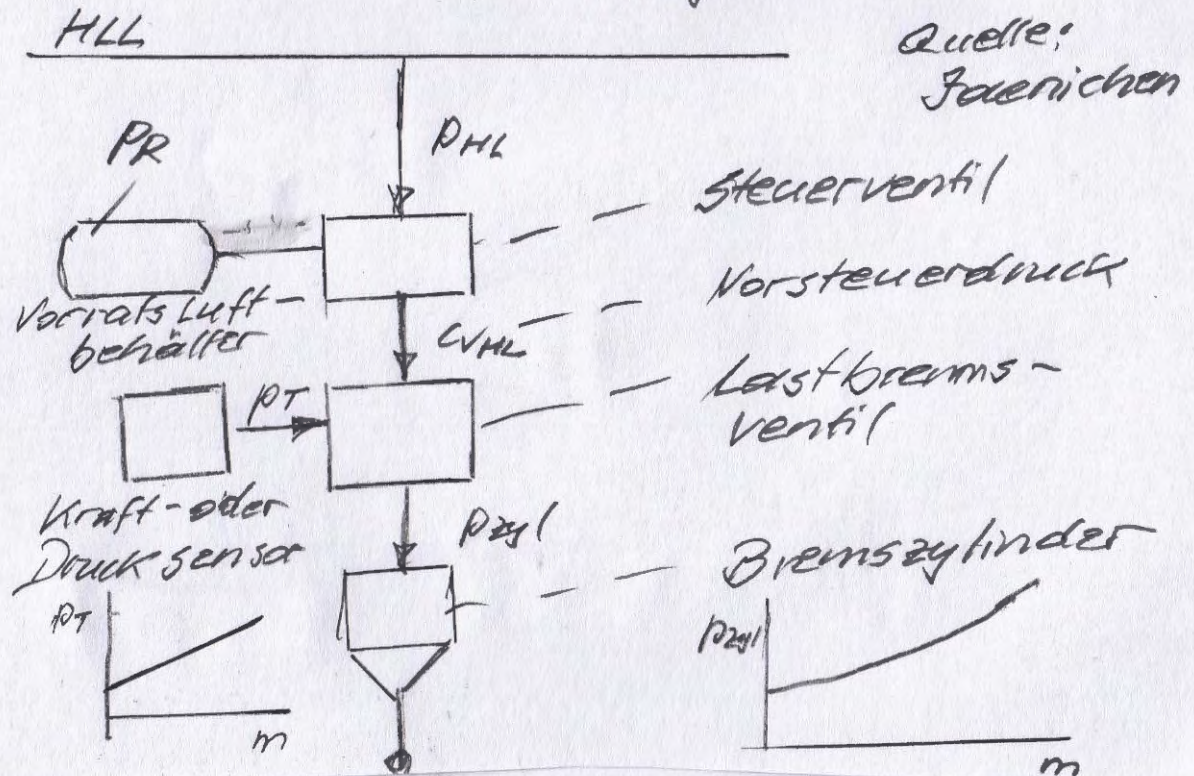 HLL
Quelle:
Jaenichen
PR
PHL
Steuerventil
Vorratsluft-
behälter
CVHL
Vorsteuerdruck
pT
Lastbrems-
ventil
Kraft- oder
Drucksensor
pzyl
Bremszylinder
pT
m
pzyl
m